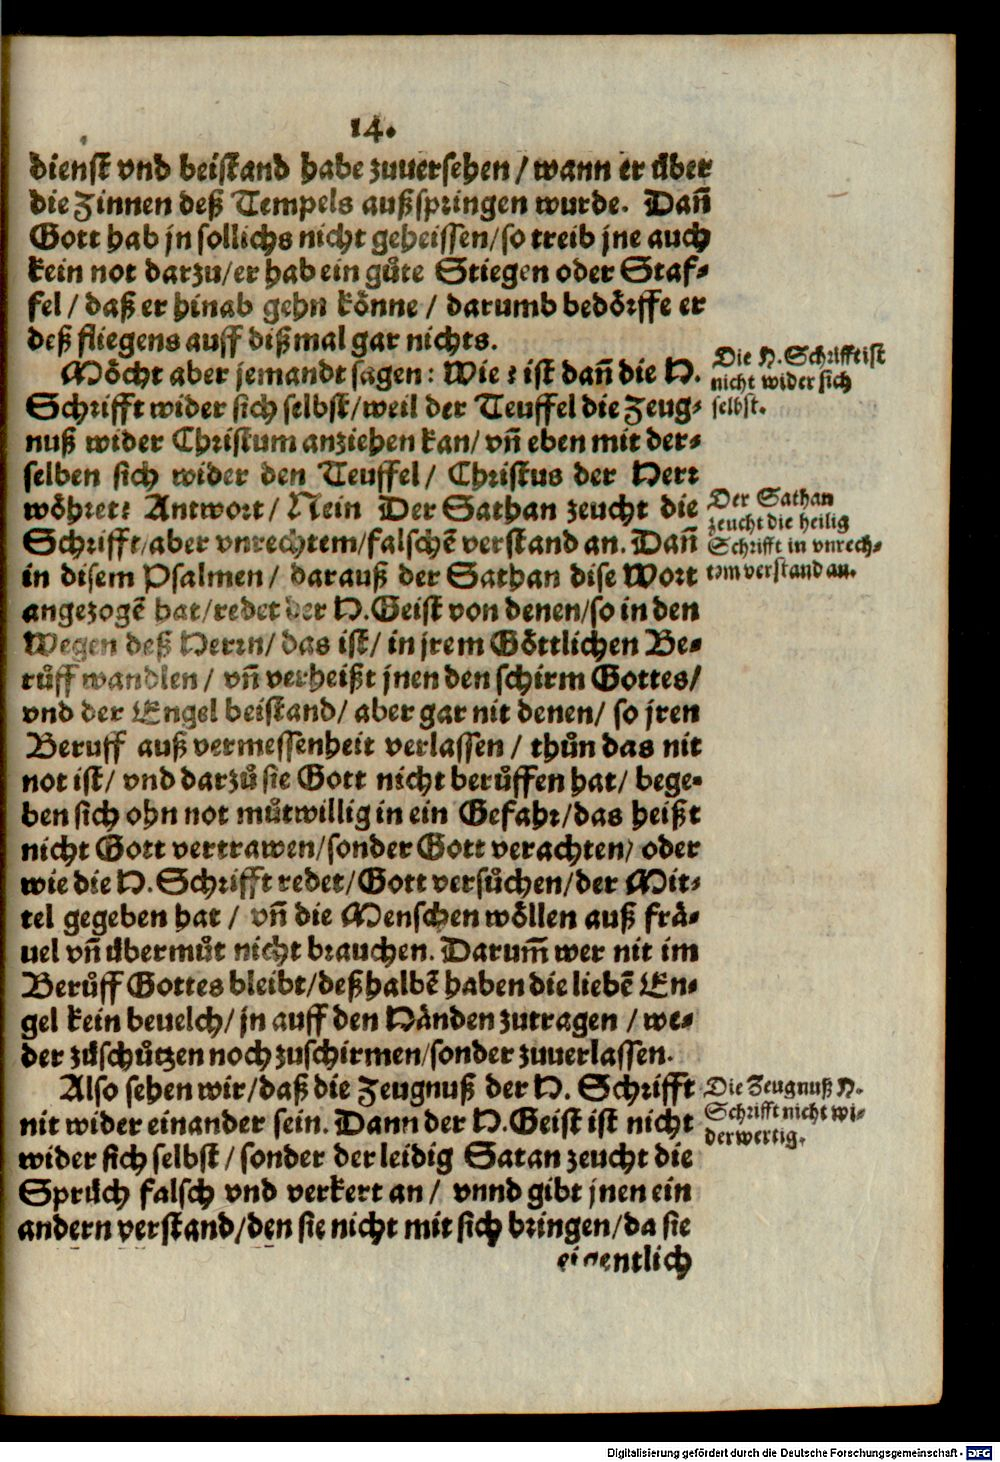 14.
dienst vnd beistand habe zuuersehen / wann er über
die Zinnen deß Tempels außspringen wurde. Dañ
Gott hab jn sollichs nicht geheissen/so treib jne auch
kein not darzu/er hab ein gůte Stiegen oder Staf-
fel / daß er hinab gehn könne / darumb bedörffe er
deß fliegens auff dißmal gar nichts.
Möcht aber jemandt sagen: Wie? ist dañ die H.
Schrifft wider sich selbst/weil der Teuffel die Zeug-
nuß wider Christum anziehen kan/ vñ eben mit der-
selben sich wider den Teuffel/ Christus der Herr
wöhret? Antwort/ Nein Der Sathan zeucht die
Schrifft/aber vnrechtem/falschẽ verstand an. Dañ
in disem Psalmen/ darauß der Sathan dise Wort
angezogẽ hat/redet der H.Geist von denen/so in den
Wegen deß Herrn/ das ist/ in jrem Göttlichen Be-
růff wandlen/ vñ verheißt jnen den schirm Gottes/
vnd der Engel beistand/ aber gar nit denen/ so jren
Beruff auß vermessenheit verlassen / thůn das nit
not ist/ vnd darzů sie Gott nicht berůffen hat/ bege-
ben sich ohn not můtwillig in ein Gefahr/das heißt
nicht Gott vertrawen/sonder Gott verachten/ oder
wie die H. Schrifft redet/Gott versůchen/der Mit-
tel gegeben hat / vñ die Menschen wöllen auß frä-
uel vñ übermůt nicht brauchen. Darum̃ wer nit im
Berůff Gottes bleibt/deßhalbẽ haben die liebẽ En-
gel kein beuelch/ jn auff den Händen zutragen / we-
der zůschützen noch zuschirmen/sonder zuuerlassen.
Also sehen wir/daß die Zeugnuß der H. Schrifft
nit wider einander sein. Dann der H.Geist ist nicht
wider sich selbst / sonder der leidig Satan zeucht die
Sprüch falsch vnd verkert an/ vnnd gibt jnen ein
andern verstand/den sie nicht mit sich bringen/da sie
eigentlich
Die H. Schrifft ist
nicht wider sich
selbst.
Der Sathan
zeucht die heilig
Schrifft in vnrech-
tem verstand an.
Die Zeugnuß H.
Schrifft nicht wi-
derwertig.
Digitalisierung gefördert durch die Deutsche Forschungsgemeinschaft - DFG